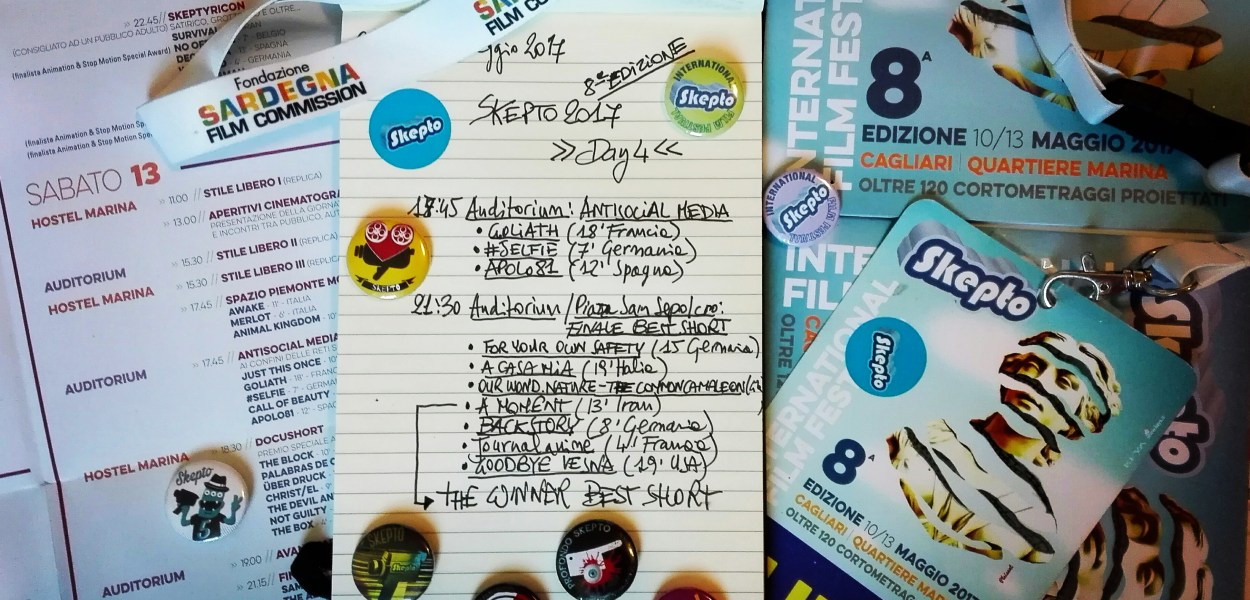 22.45// SKEPTYRICON
(CONSIGLIATO AD UN PUBBLICO ADULTO) SATIRICO,
SURVIVAL
(finalista Animation & Stop Motion Special Award)
Fondazione
SARDEGNA
FILM COMMISSION
SABATO 13
HOSTEL MARINA
11.00 // STILE LIBERO I (REPLICA)
13.00// APERITIVI CINEMATOGRA
PRESENTAZIONE DELLA GIORNA
E INCONTRI TRA PUBBLICO, AUT
15.30 // STILE LIBERO II (REPLICA)
AUDITORIUM
15.30 // STILE LIBERO III (REPLICA)
HOSTEL MARINA
17.45 // SPAZIO PIEMONTE MO
AWAKE - 11' - ITALIA
MERLOT - 6' - ITALIA
ANIMAL KINGDOM - 10
17.45 // ANTISOCIAL MEDIA
AI CONFINI DELLE RETI S
AUDITORIUM
JUST THIS ONCE
GOLIATH - 18' - FRANC
#SELFIE - 7' - GERMA
CALL OF BEAUTY
APOLO81 - 12' - SPAG
18.30 // DOCUSHORT
PREMIO SPECIALE A
HOSTEL MARINA
THE BLOCK - 10
PALABRAS DE C
ÜBER DRUCK
CHRIST/EL
THE DEVIL AN
NOT GUILTY
THE BOX - 4'
19.00 // AVAN
AUDITORIUM
21.15// FIN
Skepto
ggio 2017
8ª EDIZIONE
SKEPTO 2017
>> Day 4 <<
Skepto
INTERNATIONAL
Skepto
FILM FESTIVAL
SKEPTO
17:45 Auditorium: ANTISOCIAL MEDIA
• GOLIATH (18' Francia)
• #SELFIE (7' Germania)
• APOLO81 (12' Spagna)
21:30 Auditorium/Piazza San Sepolcro:
FINALE BEST SHORT
• FOR YOUR OWN SAFETY (15 Germania)
• A CASA MIA (19' Italia)
• OUR WOND. NATURE - THE COMMON CAMALEON
• A MOMENT (13' Iran)
• BACKSTORY (8' Germania)
• Journal animé (4' Francia)
• GOODBYE VESNA (19' USA)
THE WINNER BEST SHORT
SKEPTO
PROFONDO SKEPTO
INTERNATIONAL
Skepto
INTERNAT
FILM FEST
8ª
EDIZIONE 10/13 MAGGIO 2017
CAGLIARI | QUARTIERE MARINA
OLTRE 120 CORTOMETRAGGI PROIETTATI
INTE
FIL
Skepto
Skepto
INTERNATIONAL
FILM FESTIVAL
8ª
EDIZIONE 10/13 MAGGIO 2017
CAGLIARI | QUARTIERE MAR
OLTRE 120 CORTOMETRAG